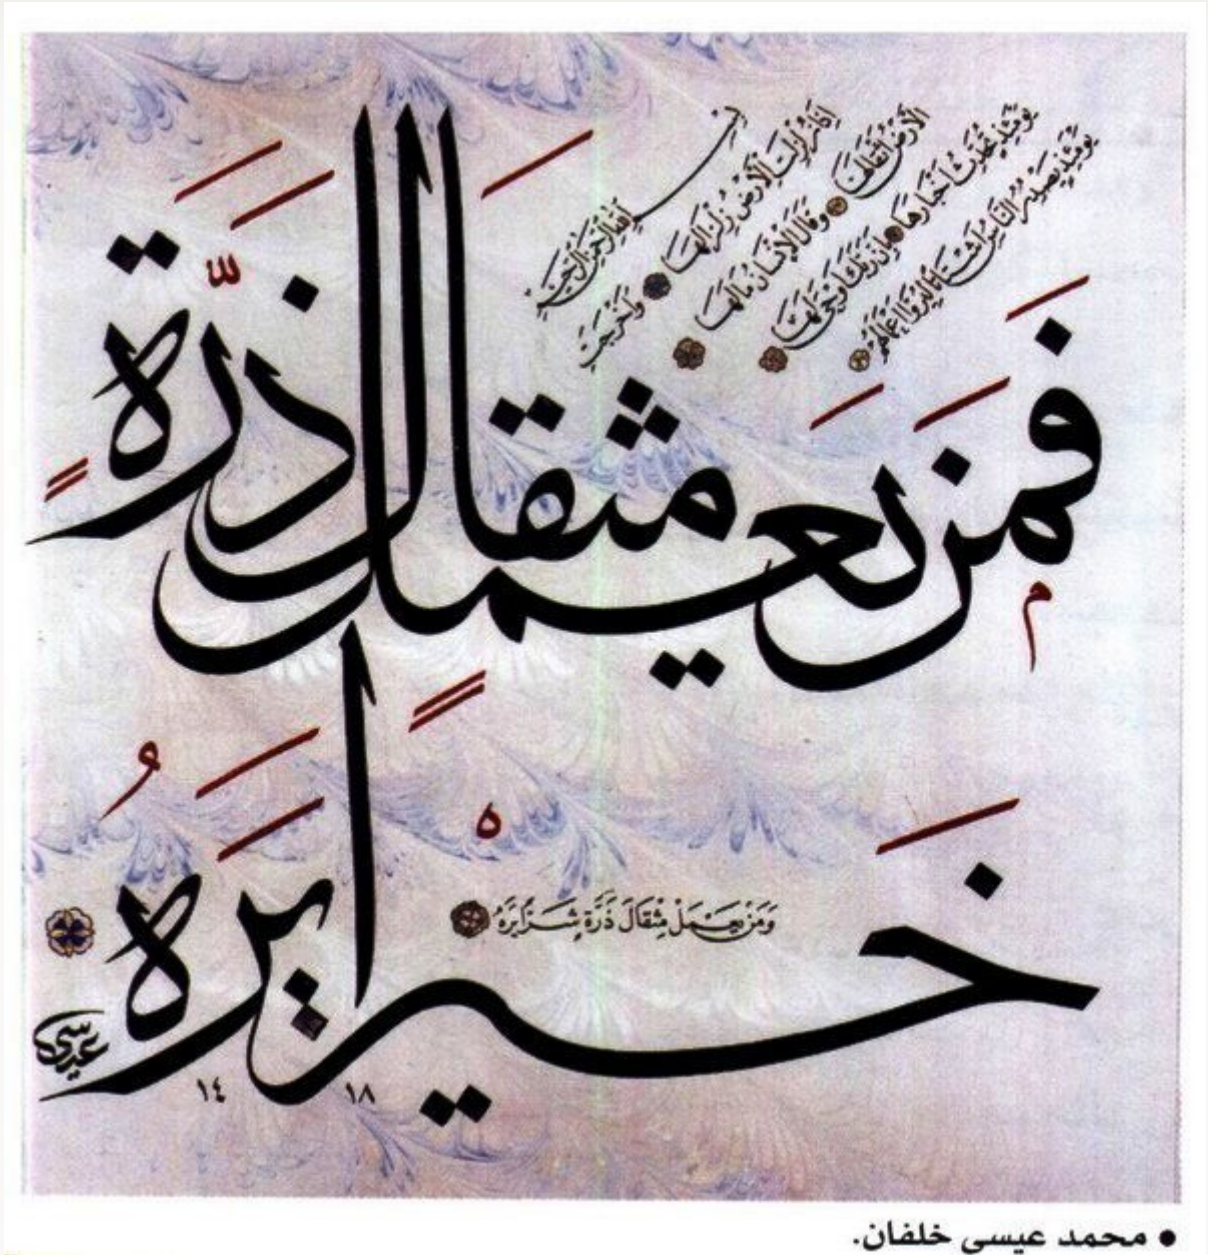 بسم الله الرحمن الرحيم
إِذَا زُلْزِلَتِ الْأَرْضُ زِلْزَالَهَا وَأَخْرَجَتِ
الْأَرْضُ أَثْقَالَهَا وَقَالَ الْإِنْسَانُ مَا لَهَا
يَوْمَئِذٍ تُحَدِّثُ أَخْبَارَهَا بِأَنَّ رَبَّكَ أَوْحَى لَهَا
يَوْمَئِذٍ يَصْدُرُ النَّاسُ أَشْتَاتًا لِيُرَوْا أَعْمَالَهُمْ
فَمَن يَعْمَل مِثقَالَ ذَرَّةٍ
خَيْرًا يَرَهُ
وَمَنْ يَعْمَلْ مِثْقَالَ ذَرَّةٍ شَرًّا يَرَهُ
عيسى
١٤١٨
• محمد عيسى خلفان.